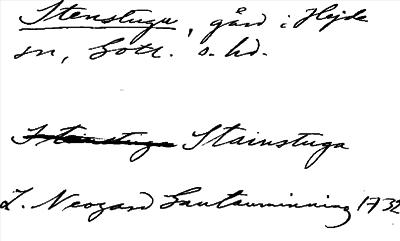 Stenstugu, gård i Hejde
sn, Gotl. s. hd.
Stainstuga
L. Neogard Gautauminning 1732